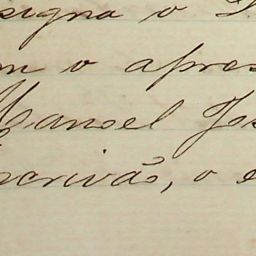 signa o
m o apres
Manoel Jo
scrivão, o e